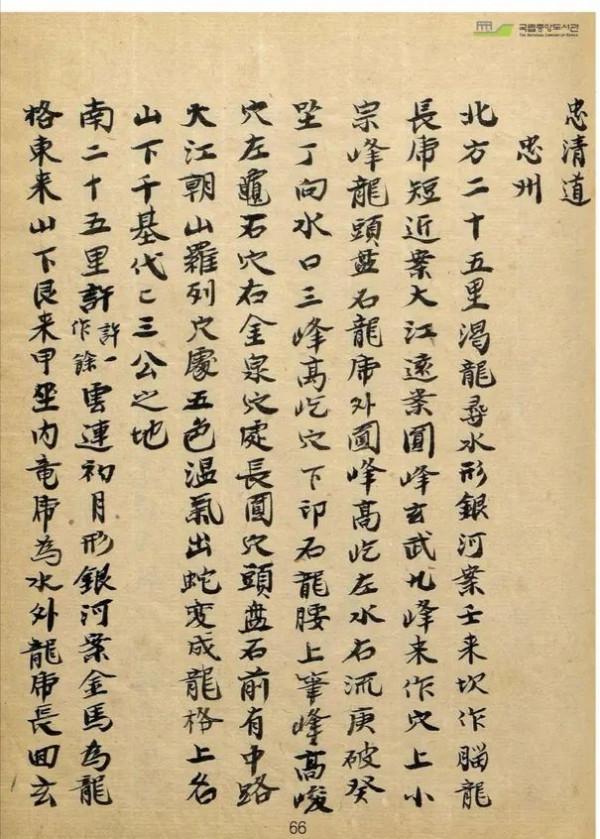 국립중앙도서관
THE NATIONAL LIBRARY OF KOREA
忠清道
忠州
北方二十五里渴龍尋水形銀河案壬来坎作腦龍
長虎短近案大江遠案圓峰玄武九峰来作穴上小
宗峰龍頭盘石龍虎外圓峰高屹左水右流庚破癸
坐丁向水口三峰高屹穴下印石龍腰上筆峰高峻
穴左龜石穴右金泉穴處長圓穴頭盘石前有中路
大江朝山羅列穴處五色温氣出蛇変成龍格上名
山下千基代〻三公之地
南二十五里許許一作餘雲連初月形銀河案金馬為龍
格東来山下艮来甲坐内竜虎為水外龍虎長回玄
66